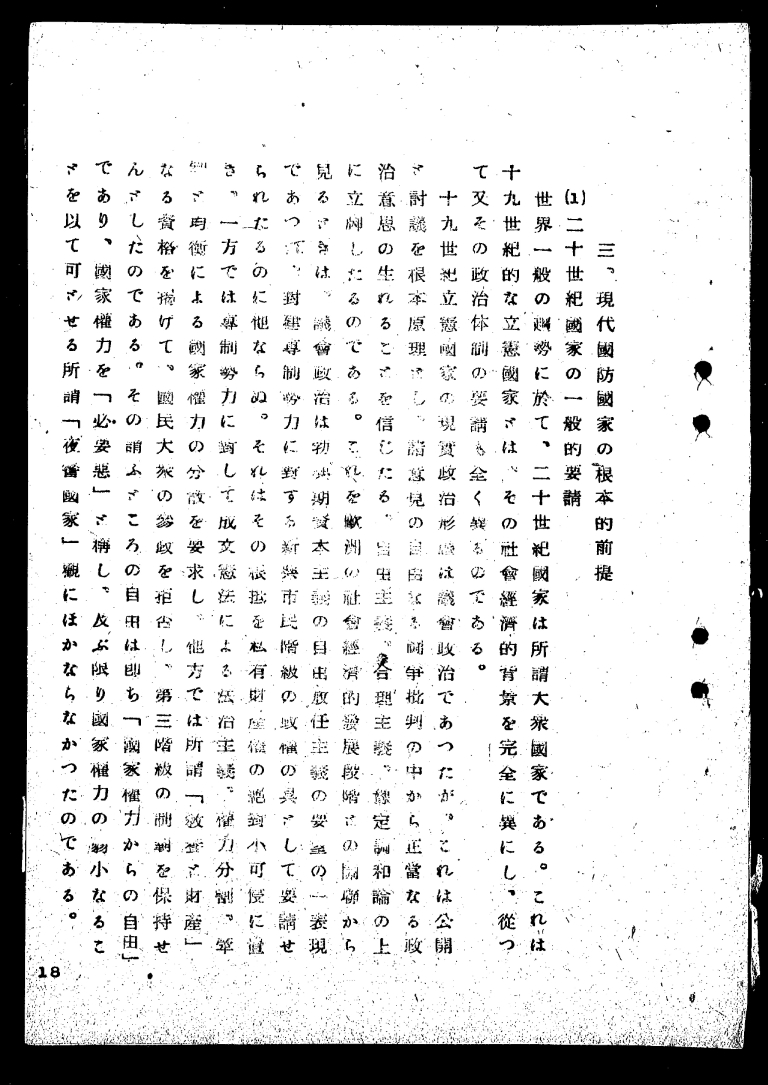 三、現代國防國家の根本的前提
(1)二十世紀國家の一般的要請
世界一般の趨勢に於て、二十世紀國家は所謂大衆國家である。これは
十九世紀的な立憲國家とは、その社會經濟的背景を完全に異にし、從つ
て又その政治体制の要請も全く異るのである。
十九世紀立憲國家の現實政治形態は議會政治であつたが、これは公開
と討議を根本原理とし、諸意見の自由なる鬪爭批判の中から正當なる政
治意思の生れることを信じたる、自由主義、合理主義、豫定調和論の上
に立脚したるのである。これを歐洲の社會經濟的發展段階との關聯から
見るときは、議會政治は勃興期資本主義の自由放任主義の要望の一表現
であつて、對建專制勢力に對する新興市民階級の政權の具として要請せ
られたるのに他ならぬ。それはその根拠を私有財産權の絶對不可侵に置
き、一方では專制勢力に對して成文憲法による法治主義、權力分割、
と均衡による國家權力の分散を要求し、他方では所謂「敎養と財産」
なる資格を掲げて、國民大衆の參政を拒否し、第三階級の制覇を保持せ
んとしたのである。その謂ふところの自由は即ち「國家權力からの自由」
であり、國家權力を「必要惡」と稱し、及ぶ限り國家權力の弱小なるこ
とを以て可とせる所謂「夜警國家」觀にほかならなかつたのである。
18